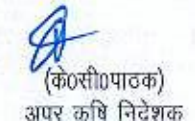 (के०सी०पाठक)
अपर कृषि निदेशक